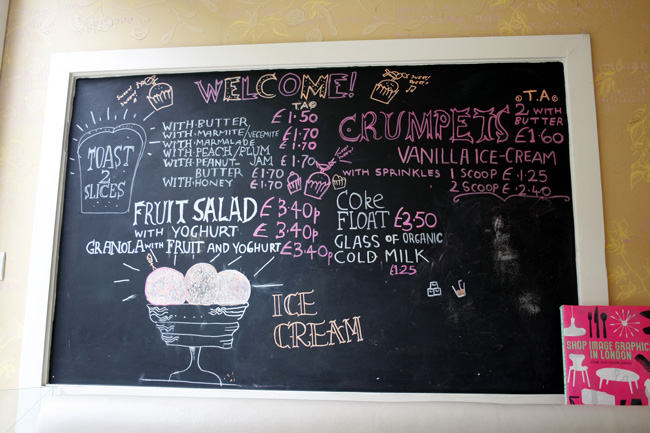 WELCOME!
TOAST
2
SLICES
T.A.
WITH BUTTER £1.50
WITH MARMITE/VEGEMITE £1.70
WITH MARMALADE £1.70
WITH PEACH/PLUM JAM £1.70
WITH PEANUT BUTTER £1.70
WITH HONEY £1.70
T.A.
CRUMPETS 2 WITH BUTTER £1.60
VANILLA ICE-CREAM
WITH SPRINKLES 1 SCOOP £1.25
2 SCOOP £2.40
FRUIT SALAD £3.40p
WITH YOGHURT £3.40p
GRANOLA WITH FRUIT AND YOGHURT £3.40p
Coke
FLOAT £3.50
GLASS OF ORGANIC
COLD MILK
£1.25
ICE
CREAM
SHOP IMAGE GRAPHICS
IN LONDON